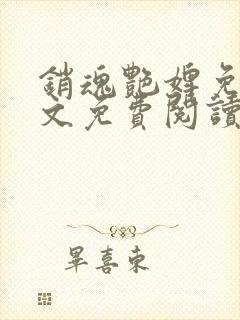 銷魂艷婢免
文免費閱讀
畢喜東